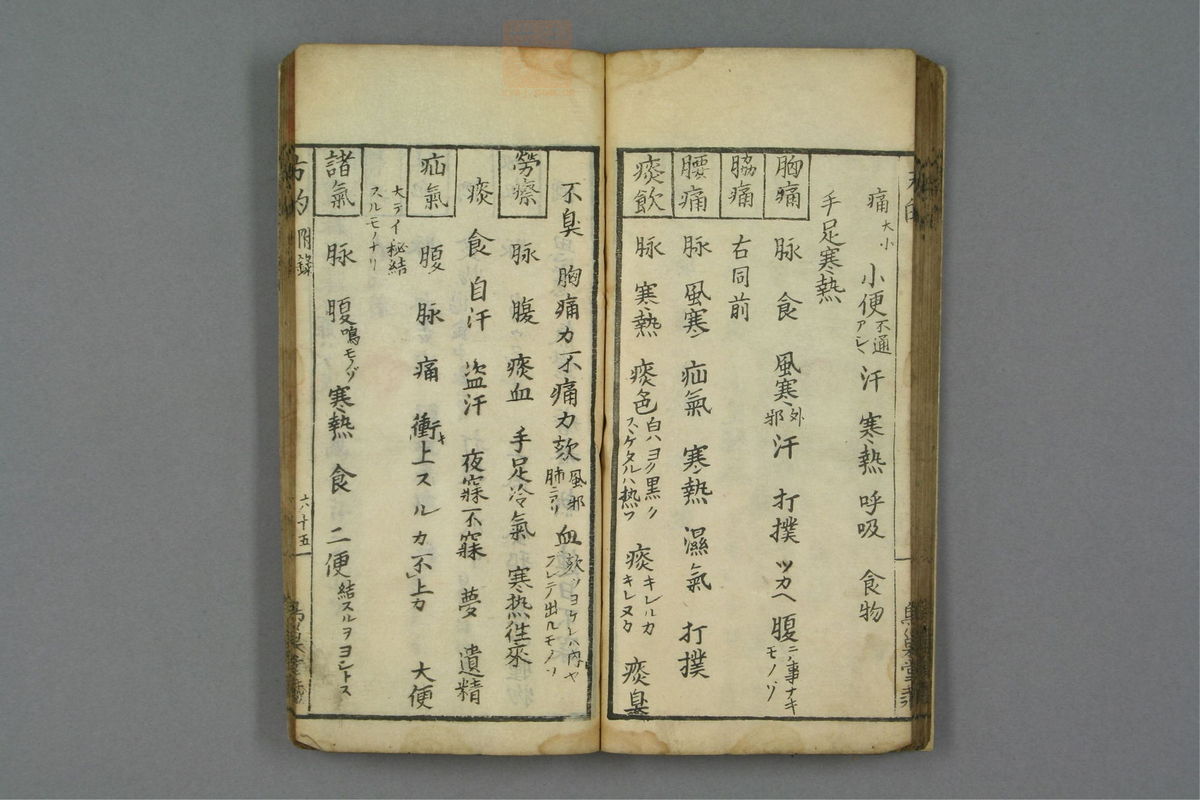 痛 大小 小便 不通アレハ 汗 寒熱 呼吸 食物
手足寒熱
胸痛 脉 食 風寒 外邪 汗 打撲 ツカヘ 腹 ニハ事ナキモノゾ
脇痛 右同前
腰痛 脉 風寒 疝氣 寒熱 濕氣 打撲
痰飲 脉 寒熱 痰色 白ハヨク黒ク スヽケタルハ熱フ 痰 キレルカ キレヌカ 痰臭
不臭 胸痛カ不痛カ 欬 風邪肺ニアリ 血 欬ツヨケレハ内ヤフレテ出ルモノソ
勞瘵 脉 腹 痰血 手足冷氣 寒热往來
痰 食 自汗 盗汗 夜寐不寐 夢 遺精
疝氣 腹 脉 痛 衝キ上スルカ不上カ 大便
大テイ秘結スルモノナリ
諸氣 脉 腹 鳴モノゾ 寒熱 食 二便 結スルヲヨシトス
方的 附錄 六十五